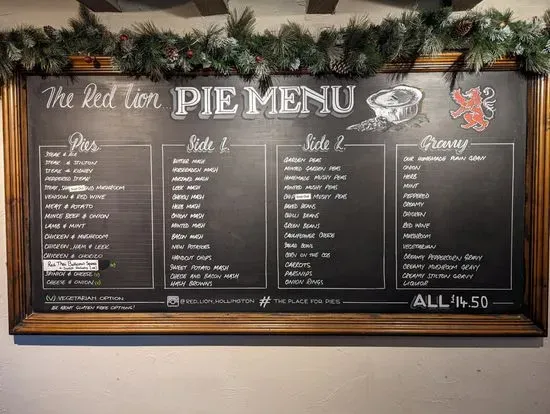 The Red Lion PIE MENU
Pies
STEAK & ALE
STEAK & STILTON
STEAK & KIDNEY
PEPPERED STEAK
STEAK, AND MUSHROOM
VENISON & RED WINE
MEAT & POTATO
MINCE BEEF & ONION
LAMB & MINT
CHICKEN & MUSHROOM
CHICKEN, HAM & LEEK
CHICKEN & CHORIZO
Red Thai Butternut Squash
SPINACH & CHEESE (V)
CHEESE & ONION (V)
(V) VEGETARIAN OPTION
ASK ABOUT GLUTEN FREE OPTIONS!
Side 1
BUTTER MASH
HORSERADISH MASH
MUSTARD MASH
LEEK MASH
CHEESY MASH
HERB MASH
ONION MASH
MINTED MASH
BACON MASH
NEW POTATOES
HANDCUT CHIPS
SWEET POTATO MASH
CHEESE AND BACON MASH
HASH BROWNS
Side 2
GARDEN PEAS
MINTED GARDEN PEAS
HOMEMADE MUSHY PEAS
MINTED MUSHY PEAS
MUSHY PEAS
BAKED BEANS
CHILLI BEANS
GREEN BEANS
CAULIFLOWER CHEESE
BREAD ROLLS
CORN ON THE COB
CARROTS
PARSNIPS
ONION RINGS
Gravy
OUR HOMEMADE PLAIN GRAVY
ONION
HERB
MINT
PEPPERED
CREAMY
CHICKEN
RED WINE
MUSHROOM
VEGETARIAN
CREAMY PEPPERCORN GRAVY
CREAMY MUSHROOM GRAVY
CREAMY STILTON GRAVY
LIQUOR
@RED_LION_HOLLINGTON # THE PLACE FOR PIES
ALL £14.50